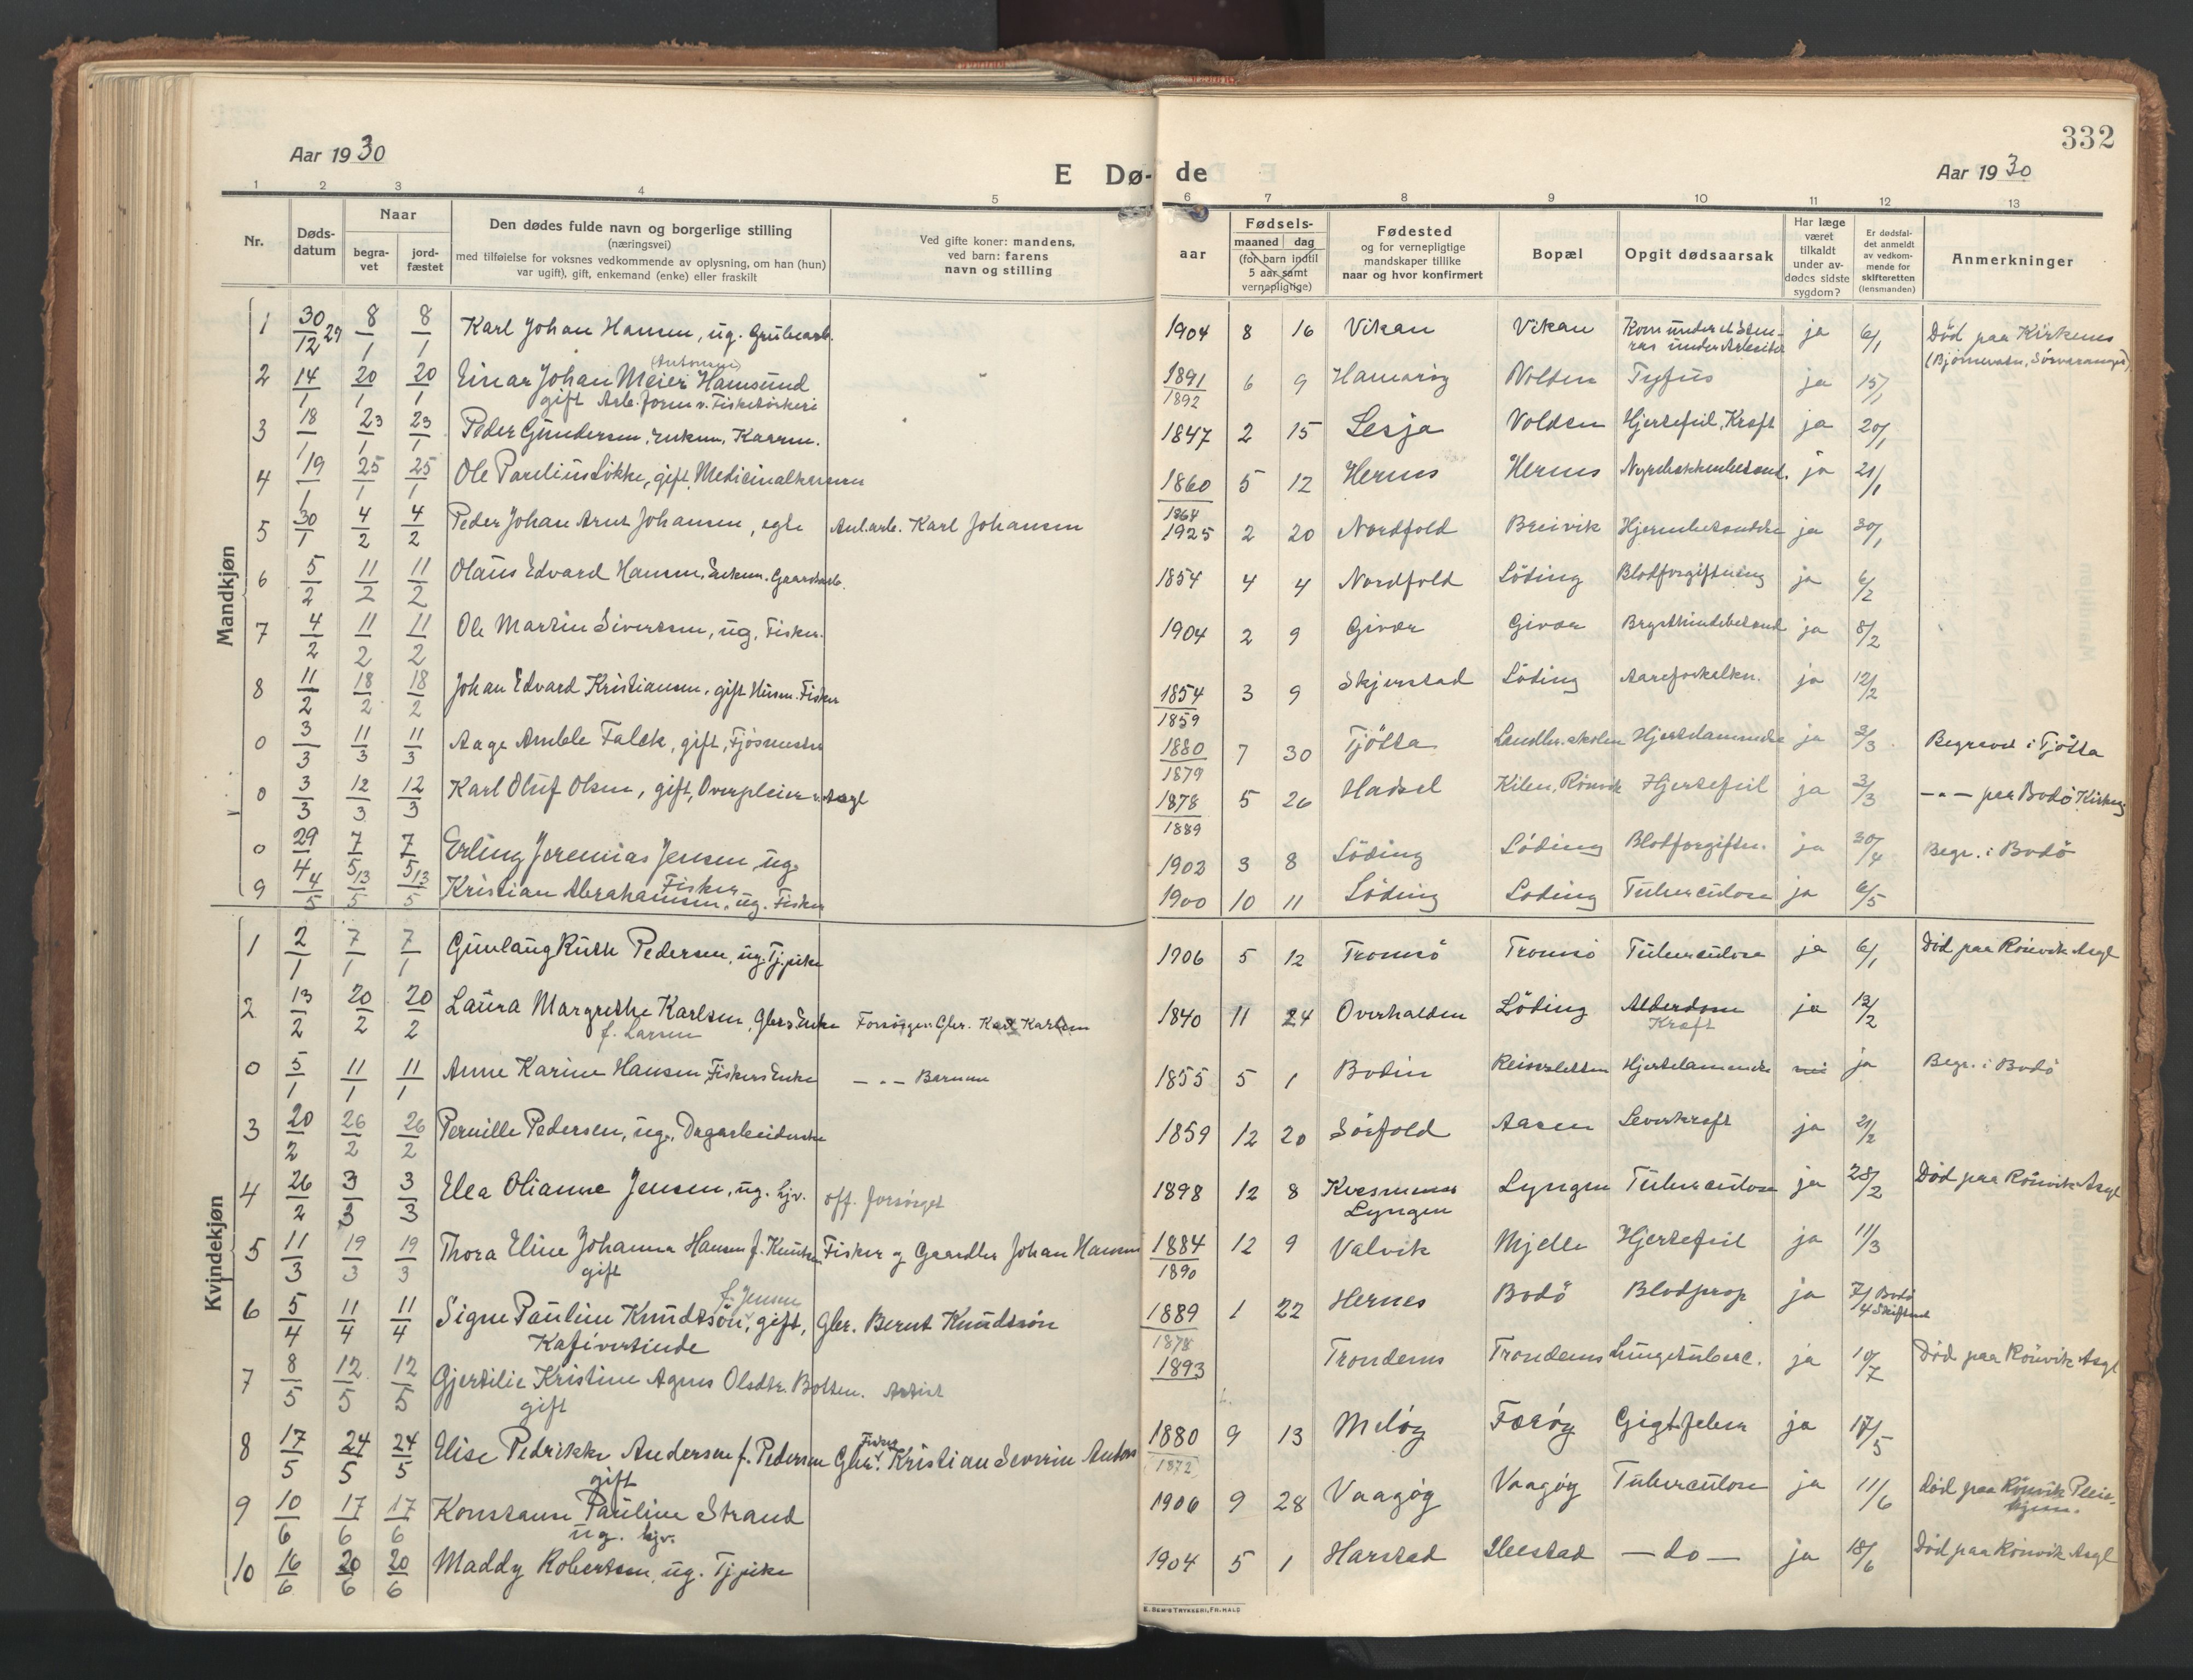 332
Aar 1930
E Dø- de
Aar 1930
1 2 3 4 5 6 7 8 9 10 11 12 13
Nr.
Døds-
datum
Naar
begra-
vet
jord-
fæstet
Den dødes fulde navn og borgerlige stilling
(næringsvei)
med tilføielse for voksnes vedkommende av oplysning, om han (hun)
var ugift), gift, enkemand (enke) eller fraskilt
Ved gifte koner: mandens,
ved barn: farens
navn og stilling
Fødsels-
aar
maaned dag
(for barn indtil
5 aar samt
vernepligtige)
Fødested
og for vernepligtige
mandskaper tillike
naar og hvor konfirmert
Bopæl
Opgit dødsaarsak
Har læge
været
tilkaldt
under av-
dødes sidste
sygdom?
Er dødsfal-
det anmeldt
av vedkom-
mende for
skifteretten
(lensmanden)
Anmerkninger
Mandkjøn
1 30/12 29 8/1 8/1 Karl Johan Hansen, ug. Grubearb. 1904 8 16 Vikan Vikan Kom under et Sten- ja 6/1 Död paa Kirkenes
ras under Arbeidet (Björnevatn, Sörvaranger)
(Antonsen)
2 14/1 20/1 20/1 Einar Johan Meier Hamsund 1891 6 9 Hamaröy Volden Tyfus ja 15/1
gift Arb.form. v. Fisketörkeri 1892
3 18/1 23/1 23/1 Peder Gundersen, Enkem. Kaarm. 1847 2 15 Lesja Volden Hjertefeil, Kræft ja 20/1
4 19/1 25/1 25/1 Ole Parelius Løkke, gift, 1860 5 12 Hernes Hernes ja 21/1
1868
5 30/1 4/2 4/2 Peder Johan Arnt Johansen, egte Anl.arb. Karl Johansen 1925 2 20 Nordfold Breivik Hjernebetændelse ja 30/1
6 5/2 11/2 11/2 Olaus Edvard Hansen, Enkem. Gaardarb. 1854 4 4 Nordfold Löding Blodforgiftning ja 6/2
7 4/2 11/2 11/2 Ole Martin Sivertsen, ug. Fisker. 1904 2 9 Givær Givær Brysthindebetænd ja 8/2
8 11/2 18/2 18/2 Johan Edvard Kristiansen, gift Husm. Fisker 1854 3 9 Skjerstad Löding Aareforkalkn. ja 12/2
1859
0 3/3 11/3 11/3 Aage Amble Falck, gift, Fjösmester 1880 7 30 Tjötta Landbr.skolen Hjertelammelse ja 3/3 Begravet i Tjötta
1879
0 3/3 12/3 12/3 Karl Oluf Olsen, gift, Overpleier v. Asyl 1878 5 26 Hadsel Kilen, Rönvik Hjertefeil ja 3/3 — „ — paa Bodö Kirkeg
1889
0 29/4 7/5 7/5 Erling Jeremias Jensen, ug. 1902 3 8 Löding Löding Blodforgiftn. ja 30/4 Begr. i Bodö
Fisker
9 4/5 13/5 13/5 Kristian Abrahamsen, ug. Fisker 1900 10 11 Löding Löding Tuberculose ja 6/5
Kvindekjøn
1 2/1 7/1 7/1 Gunlaug Ruth Pedersen, ug. Tj.pike 1906 5 12 Tromsö Tromsö Tuberculose ja 6/1 Död paa Rönvik Asyl
2 13/2 20/2 20/2 Laura Margrethe Karlsen, Gbrs Enke Forsörger: Gbr. Karl Karlsen 1840 11 24 Overhalden Löding Alderdom ja 13/2
f. Larsen Kræft
0 5/1 11/1 11/1 Anne Karine Hansen, Fiskers Enke — „ — Barnene 1855 5 1 Bodin Hjertelammelse nei ja Begr. i Bodö
3 20/2 26/2 26/2 Pernille Pedersen, ug., Dagarbeiderske 1859 12 20 Sörfold Aasen Leverkræft ja 21/2
4 26/2 3/3 3/3 Elea Olianne Jensen, ug. hjv. off. forsörget 1898 12 8 Kvesmenes Lyngen Tuberculose ja 28/2 Död paa Rönvik Asyl
Lyngen
5 11/3 19/3 19/3 Thora Eline Johanna Hansen f. Knutsen Fisker og Gaardbr Johan Hansen 1884 12 9 Valvik Mjelle Hjertefeil ja 11/3
gift 1890
f. Jensen
6 5/4 11/4 11/4 Signe Pauline Knudtsön, gift, Gbr. Bernt Knudtsön 1889 1 22 Hernes Bodö Blodprop ja 7/4 Bodö
Kafévertinde 1878 Skifteret
7 8/5 12/5 12/5 Gjertilie Kristine Agnes Olsdtr. Boltsen. Artist 1893 Trondenes Trondenes Lungetuberc. ja 10/7 Död paa Rönvik Asyl
gift
Fisker
8 17/5 24/5 24/5 Elise Pedrikke Andersen f. Pedersen Gbr. Kristian Severin Anders 1880 9 13 Melöy Færöy Gigtfeber ja 17/5
gift 1872
9 10/6 17/6 17/6 Konstanse Pauline Strand 1906 9 28 Vaagöy Vaagöy Tuberculose ja 11/6 Död paa Rönvik Pleie-
ug. hjv. hjem.
10 16/6 20/6 20/6 Maddy Robertsen, ug. Tj.pike 1904 5 1 Harstad — do — ja 18/6 Död paa Rönvik Asyl
E. SEM'S TRYKKERI, FR. HALD